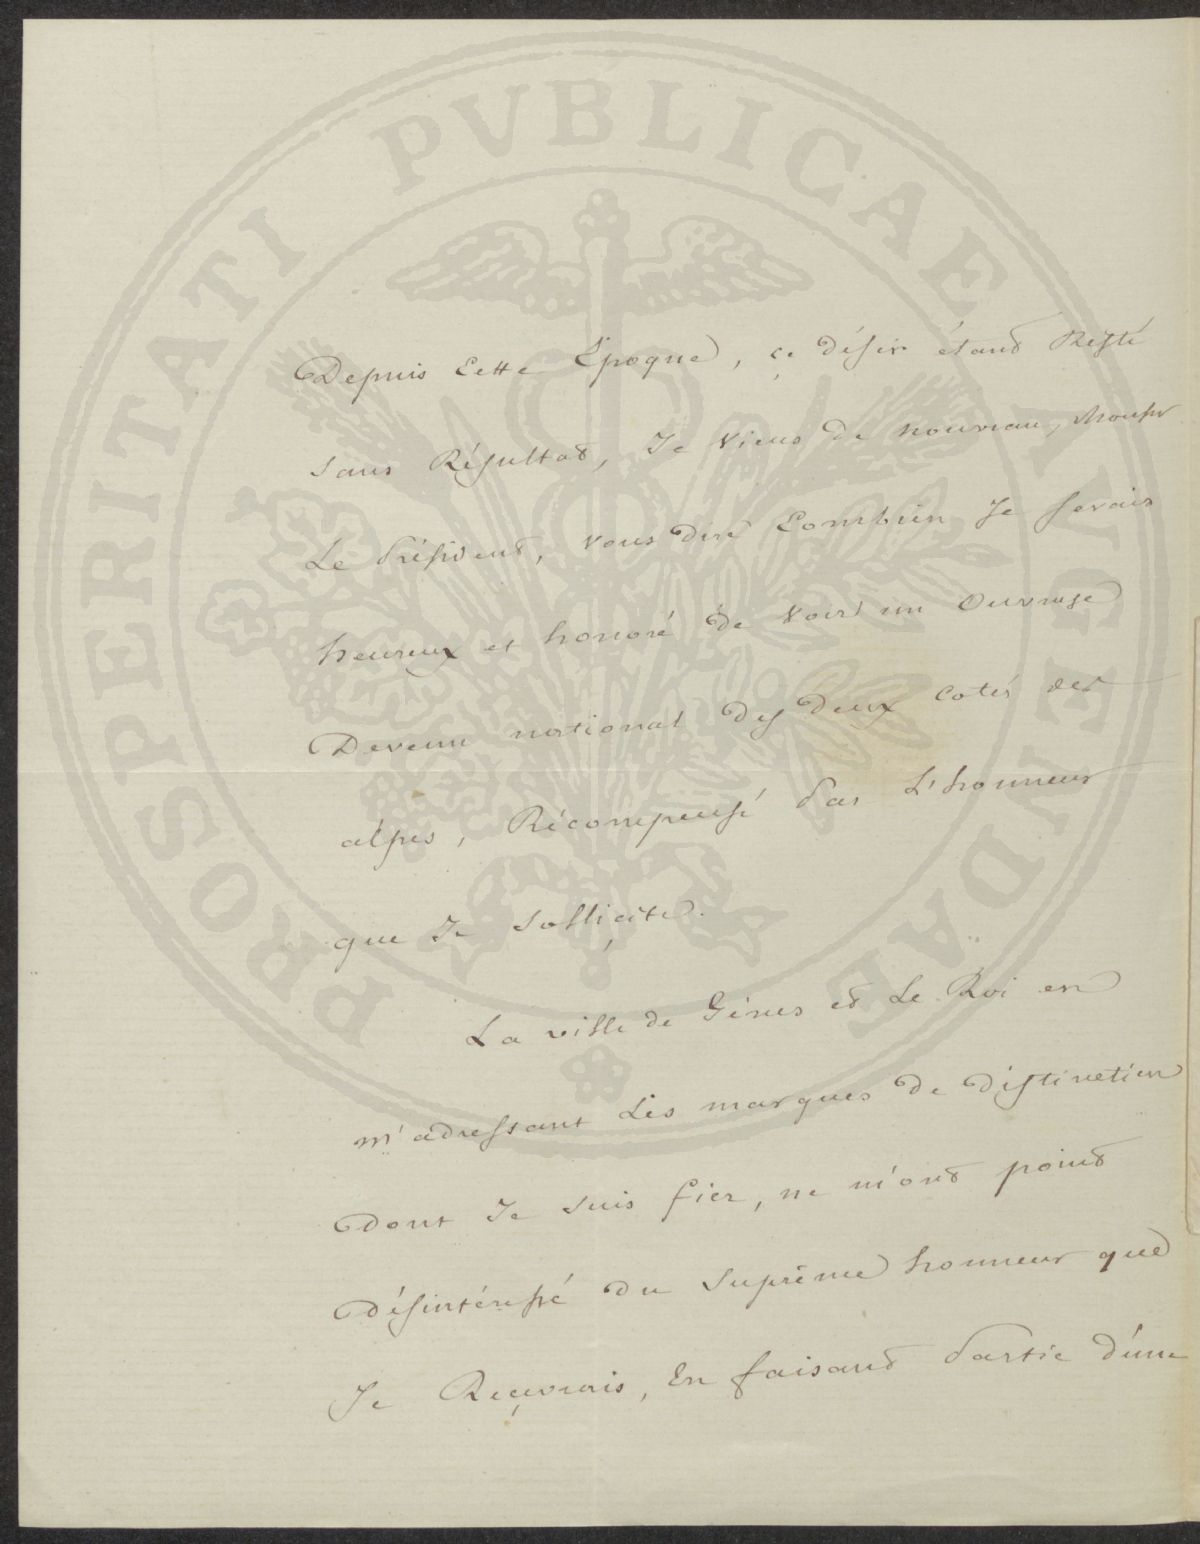 PROSPERITATI PVBLICAE AVGENDAE
Depuis Cette Epoque, çe désir étant Resté
sans Résultat, Je Viens de nouveau, Monsr
Le Président, vous dire Combien Je serais
heureux et honoré de Voir un Ouvrage
Devenu national des deux Cotés des
alpes, Récompensé Par L'honneur
que Je solliçite.
La ville de Gênes et Le Roi en
m'adressant Les marques de distinction
dont Je suis fier, ne m'ont point
désintéressé du Suprême honneur que
Je Reçevrais, En faisant Partie d'une